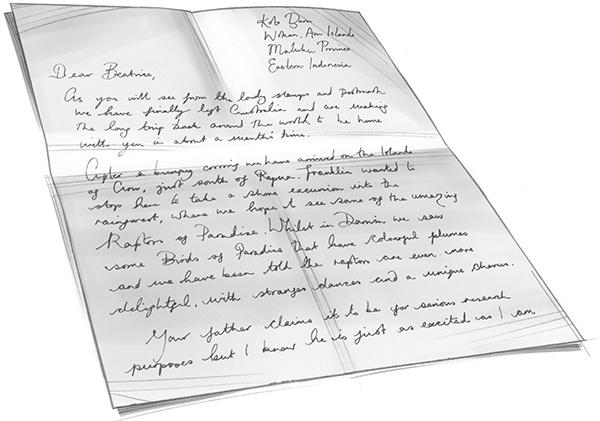 Kob Barn
Wokan, Aru Islands
Maluku Province
Eastern Indonesia
Dear Beatrice,
As you will see from the lovely stamps and postmark
we have finally left Australia and are making
the long trip back around the world to be home
with you in about a month's time.
After a bumpy crossing we have arrived on the Islands
of Crow, just south of Papua. Franklin wanted to
stop here to take a short excursion into the
rainforest, where we hope to see some of the amazing
Raptors of Paradise. Whilst in Darwin we saw
some Birds of Paradise that have colourful plumes
and we have been told the raptors are even more
delightful, with stranger dances and a unique chorus.
Your father claims it to be for serious research
purposes but I know he is just as excited as I am